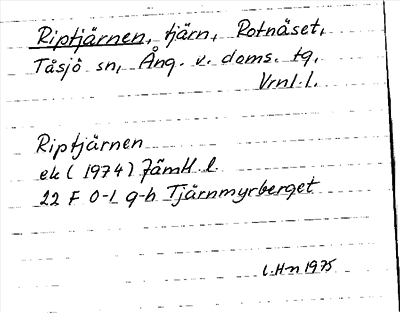 Riptjärnen, tjärn, Rotnäset,
Tåsjö sn, Ång. v. doms. tg,
Vrnl. l.
Riptjärnen
ek (1974) Jämtl. l.
22 F 0-1 g-h Tjärnmyrberget
L.H-n 1975